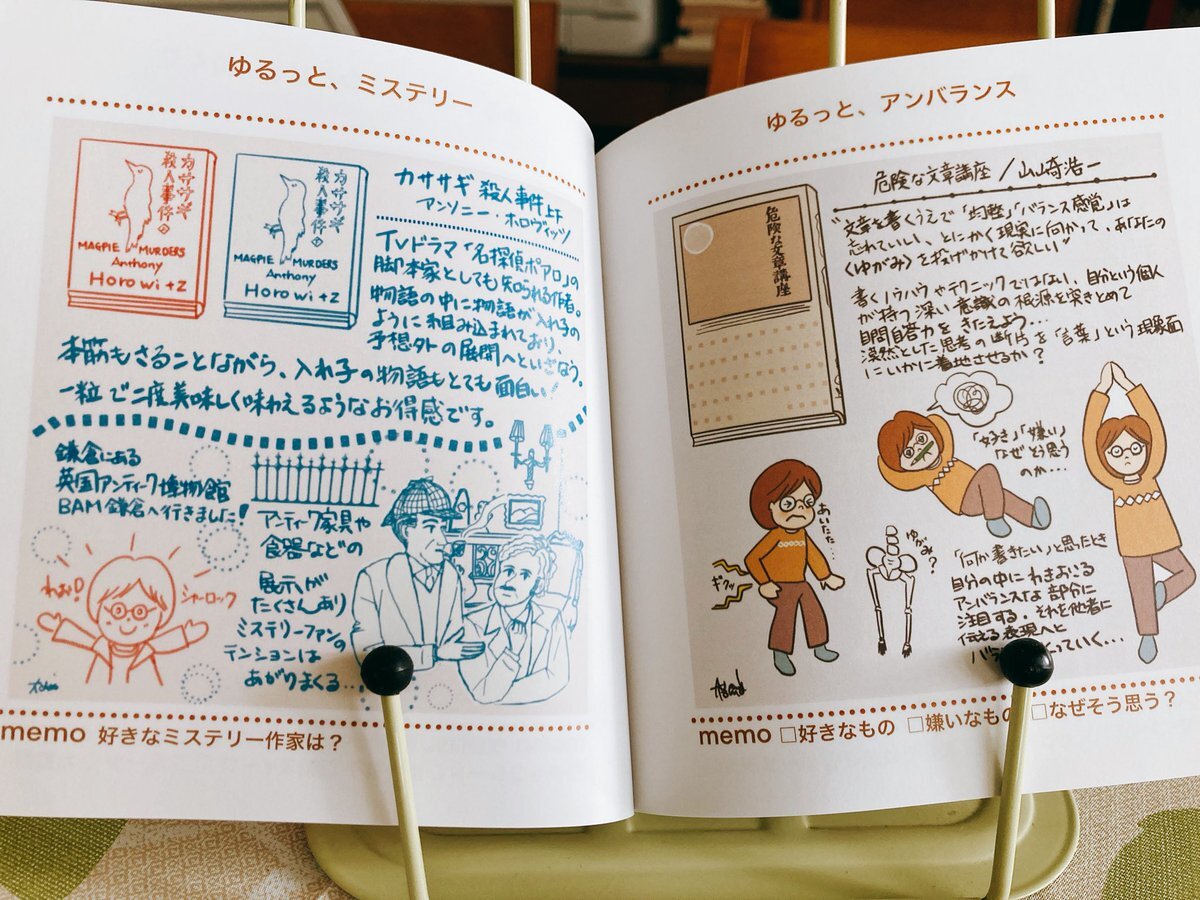 ゆるっと、ミステリー
カササギ
殺人事件上
MAGPIE MURDERS
Anthony
Horowitz
カササギ
殺人事件下
MAGPIE MURDERS
Anthony
Horowitz
カササギ殺人事件上下
アンソニー・ホロヴィッツ
TVドラマ「名探偵ポアロ」の
脚本家としても知られる作者。
物語の中に物語が入れ子の
ように組み込まれており、
予想外の展開へといざなう。
本筋もさることながら、入れ子の物語もとても面白い!
一粒で二度美味しく味わえるようなお得感です。
鎌倉にある
英国アンティーク博物館
BAM鎌倉へ行きました!
アンティーク家具や
食器などの
展示が
たくさんあり
ミステリーファンの
テンションは
あがりまくる…
わぉ!
シャーロック
memo 好きなミステリー作家は?
ゆるっと、アンバランス
危険な文章講座
危険な文章講座/山崎浩一
"文章を書くうえで「均整」「バランス感覚」は
忘れていい、とにかく現実に向かって、あなたの
〈ゆがみ〉を投げかけて欲しい"
書くノウハウやテクニックではない、自分という個人
が持つ深い意識の根源を突きとめて
自問自答力をきたえよう…
渾然とした思考の断片を「言葉」という現象面
にいかに着地させるか?
「好き」「嫌い」
なぜそう思う
のか…
あいたた…
ギクッ
ゆがみ?
「何か書きたい」と思たとき
自分の中にわきおこる
アンバランスな部分に
注目する。それを他者に
伝える表現へと
っていく…
memo □好きなもの □嫌いなもの □なぜそう思う?